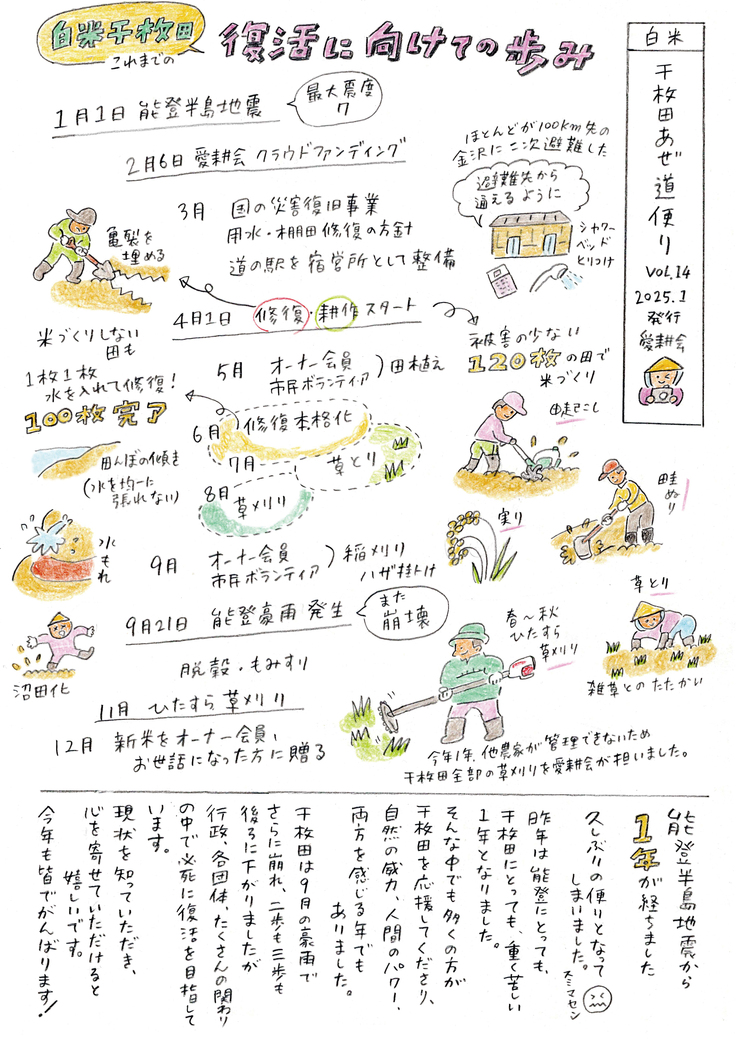 白米千枚田
これまでの
復活に向けての歩み
白米
千枚田あぜ道便り
VOL.14
2025.1
発行
愛耕会
1月1日 能登半島地震
最大震度
7
2月6日 愛耕会 クラウドファンディング
ほとんどが100km先の
金沢に二次避難した
避難先から
通えるように
シャワー
ベッド
とりつけ
3月 国の災害復旧事業
用水・棚田修復の方針
道の駅を宿営所として整備
亀裂を
埋める
4月1日 修復・耕作スタート
米づくりしない
田も
1枚1枚
水を入れて修復!
100枚完了
被害の少ない
120枚の田で
米づくり
5月 オーナー会員
市民ボランティア
田植え
6月 修復本格化
7月 草とり
8月 草刈り
田んぼの傾き
(水を均一に
張れない)
水もれ
田起こし
畦ぬり
実り
草とり
雑草とのたたかい
9月 オーナー会員
市民ボランティア
稲刈り
ハザ掛け
9月21日 能登豪雨発生
また
崩壊
沼田化
脱穀・もみすり
春〜秋
ひたすら
草刈り
11月 ひたすら草刈り
12月 新米をオーナー会員、
お世話になった方に贈る
今年1年、他農家が管理できないため
千枚田全部の草刈りを愛耕会が担いました。
能登半島地震から
1年が経ちました
久しぶりの便りとなって
しまいました。スミマセン
昨年は能登にとっても、
千枚田にとっても、重く苦しい
1年となりました。
そんな中でも多くの方が
千枚田を応援してくださり、
自然の威力、人間のパワー、
両方を感じる年でも
ありました。
千枚田は9月の豪雨で
さらに崩れ、二歩も三歩も
後ろに下がりましたが
行政、各団体、たくさんの関わり
の中で必死に復活を目指して
います。
現状を知っていただき、
心を寄せていただけると
嬉しいです。
今年も皆でがんばります!